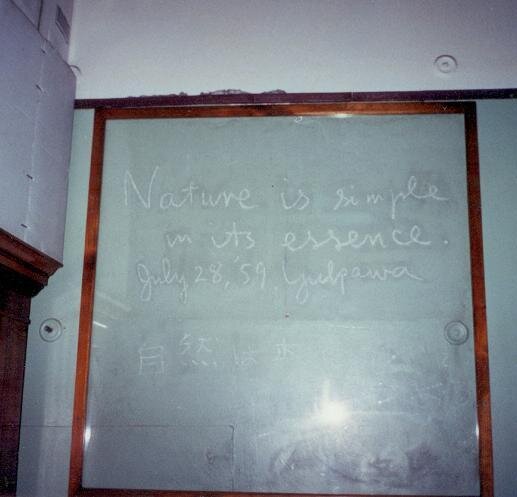 Nature is simple
in its essence.
July 28, '59. Yukawa
自然は